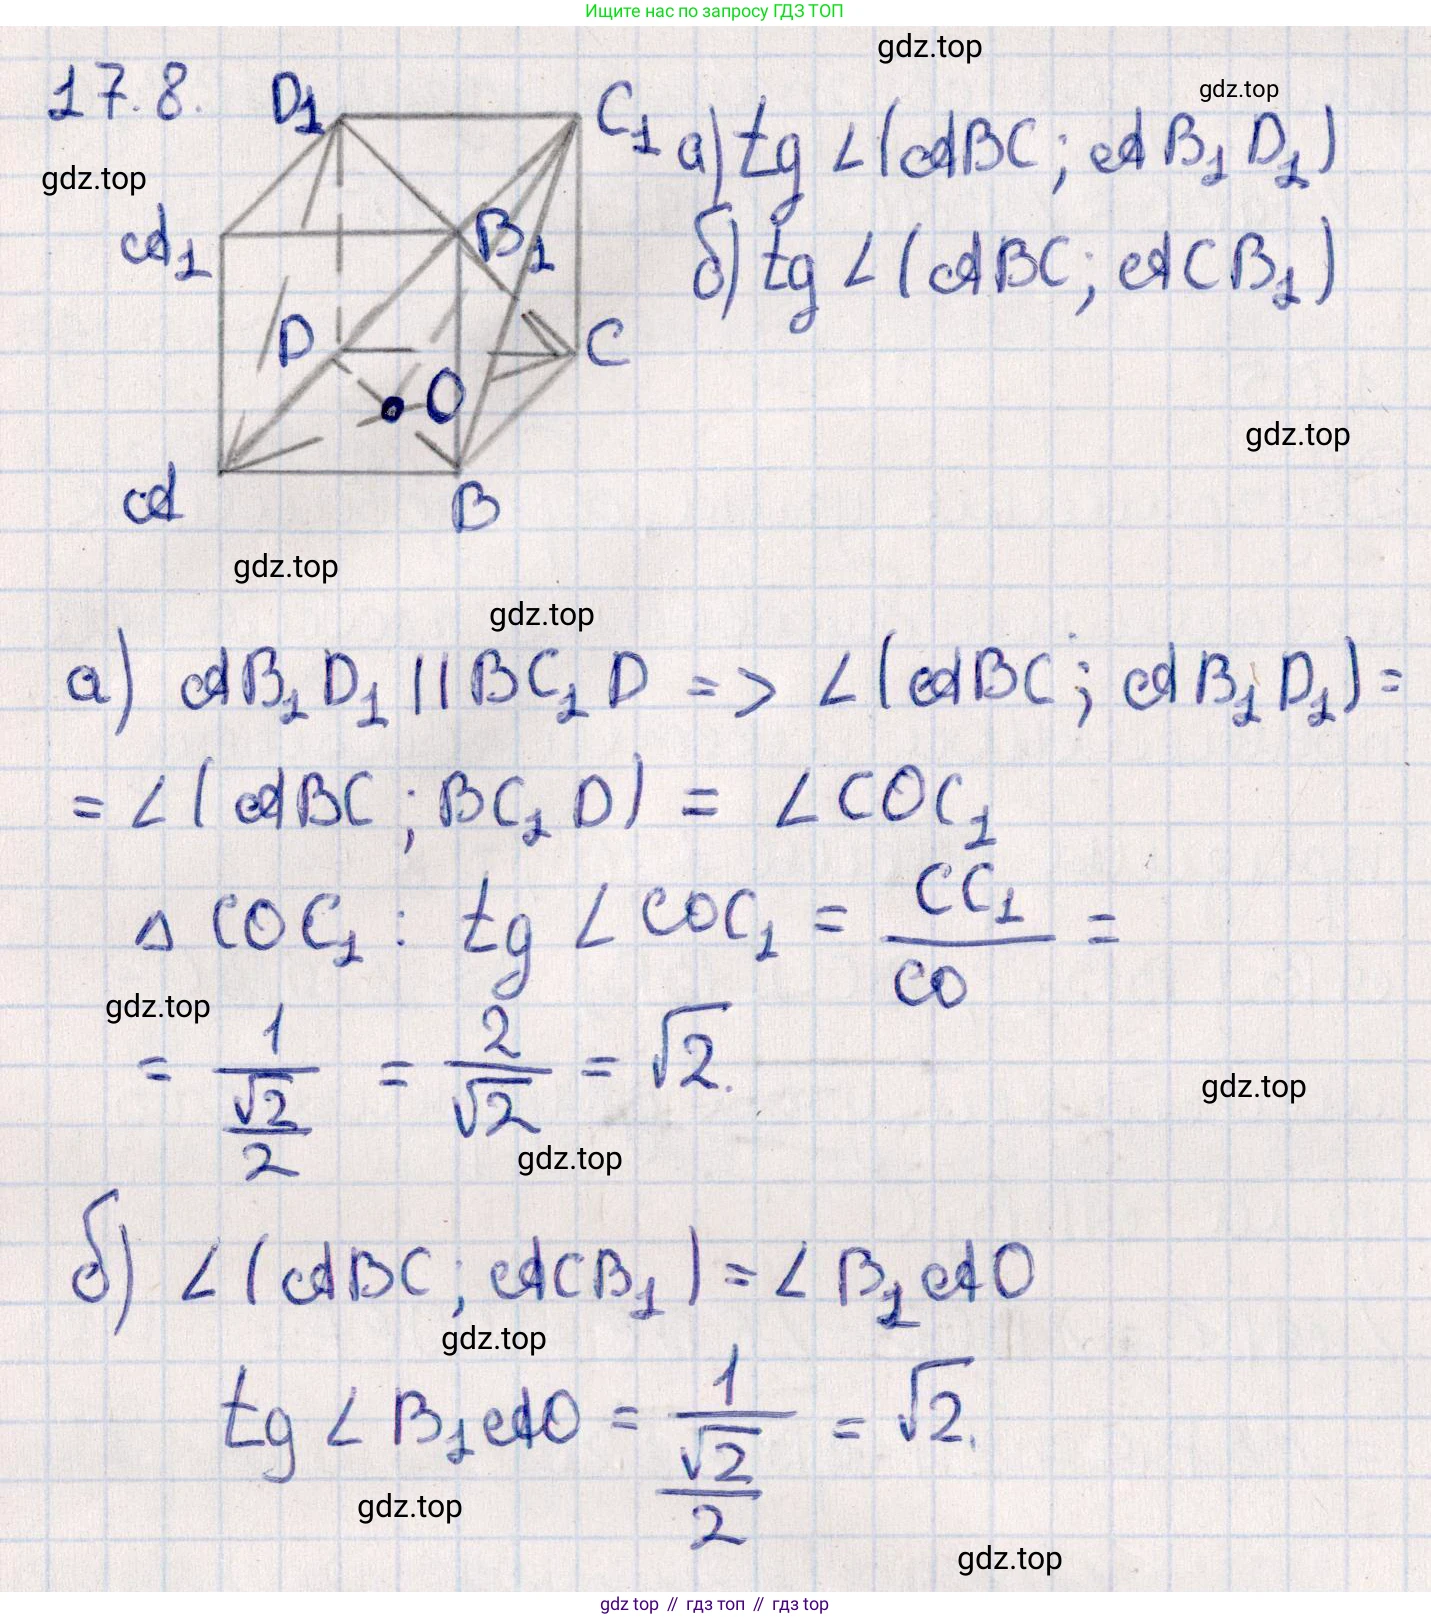 Ищите нас по запросу ГДЗ ТОП
gdz.top
17.8.
D₁
C₁
а) tg ∠(ABC; AB₁D₁)
gdz.top
gdz.top
A₁
B₁
б) tg ∠(ABC; ACB₁)
D
C
O
gdz.top
A
B
gdz.top
gdz.top
а) AB₁D₁ || BC₁D => ∠(ABC; AB₁D₁) =
= ∠(ABC; BC₁D) = ∠COC₁
△ COC₁ : tg ∠COC₁ = CC₁/CO =
gdz.top
= 1/(√2/2) = 2/√2 = √2.
gdz.top
gdz.top
б) ∠(ABC; ACB₁) = ∠B₁AO
gdz.top
tg ∠B₁AO = 1/(√2/2) = √2.
gdz.top
gdz.top
gdz top // гдз топ // гдз top